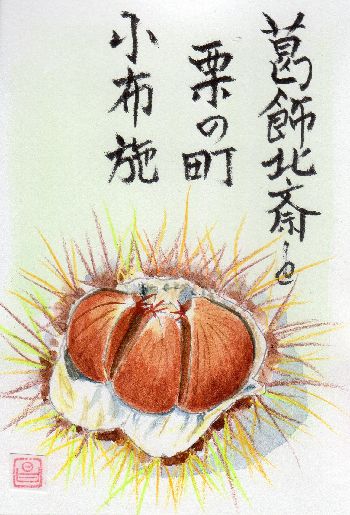 葛飾北斎と
栗の町
小布施